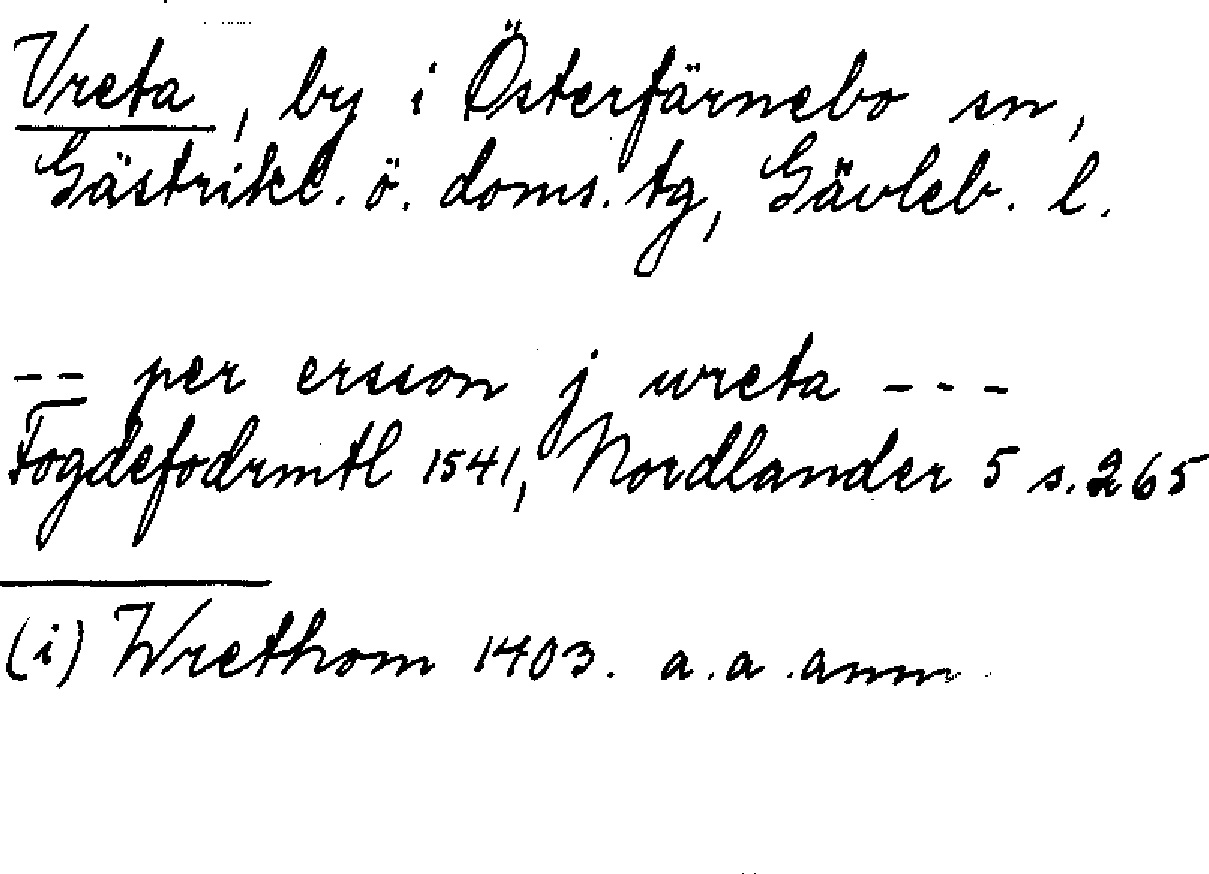 Vreta, by i Österfärnebo sn,
Gästrikl. ö. doms. tg, Gävleb. l.
-- per ersson j wreta ---
Fogdefodrmtl 1541, Nordlander 5 s. 265
(i) Wrethom 1403. a.a. anm